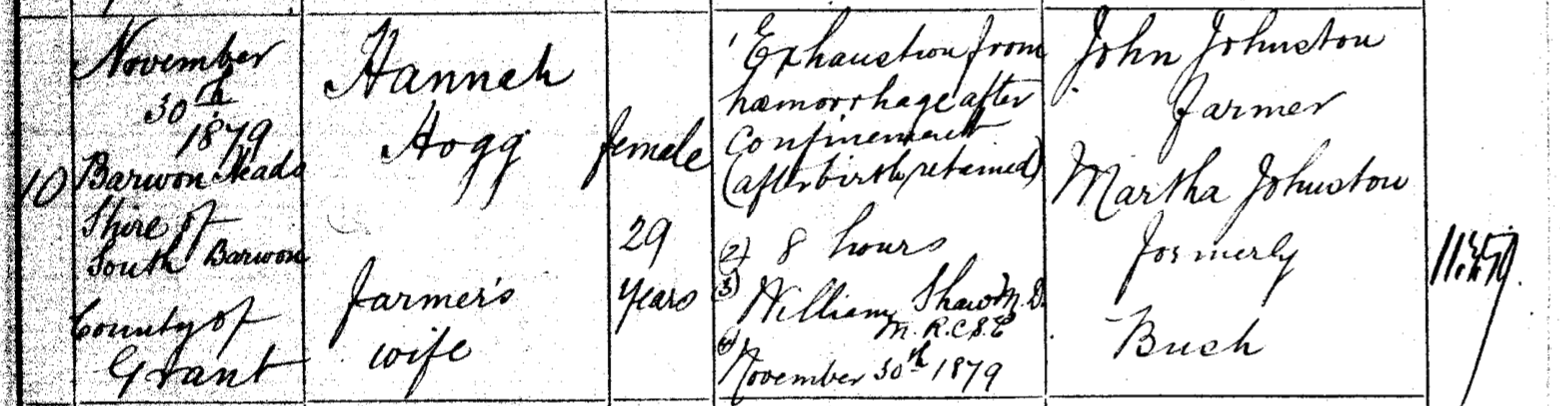 10
November
30th
1879
Barwon Heads
Shire of
South Barwon
County of
Grant
Hannah
Hogg
Farmer's
wife
female
29
years
1 Exhaustion from
hæmorrhage after
Confinement
(afterbirth retained)
(2) 8 hours
(3) William Shaw M.D.
M.R.C.S.E
(4) November 30th 1879
John Johnston
Farmer
Martha Johnston
formerly
Bush